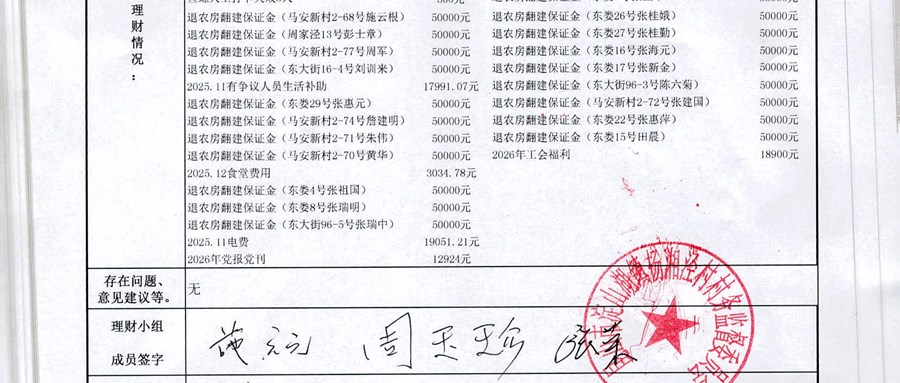 理财情况：
退农房翻建保证金（马安新村2-68号施云根） 50000元 退农房翻建保证金（东娄26号张桂娥） 50000元
退农房翻建保证金（周家泾13号彭士章） 50000元 退农房翻建保证金（东娄27号张桂勤） 50000元
退农房翻建保证金（马安新村2-77号周军） 50000元 退农房翻建保证金（东娄16号张海元） 50000元
退农房翻建保证金（东大街16-4号刘训来） 50000元 退农房翻建保证金（东娄17号张新金） 50000元
2025.11有争议人员生活补助 17991.07元 退农房翻建保证金（东大街96-3号陈六菊） 50000元
退农房翻建保证金（东娄29号张惠元） 50000元 退农房翻建保证金（马安新村2-72号张建国） 50000元
退农房翻建保证金（马安新村2-74号詹建明） 50000元 退农房翻建保证金（东娄22号张惠萍） 50000元
退农房翻建保证金（马安新村2-71号朱伟） 50000元 退农房翻建保证金（东娄15号田晨） 50000元
退农房翻建保证金（马安新村2-70号黄华） 50000元 2026年工会福利 18900元
2025.12食堂费用 3034.78元
退农房翻建保证金（东娄4号张祖国） 50000元
退农房翻建保证金（东娄8号张瑞明） 50000元
退农房翻建保证金（东大街96-5号张瑞中） 50000元
2025.11电费 19051.21元
2026年党报党刊 12924元
存在问题、
意见建议等。
无
理财小组
成员签字
周玉珍
淀山湖镇杨湘泾村村务监督委员